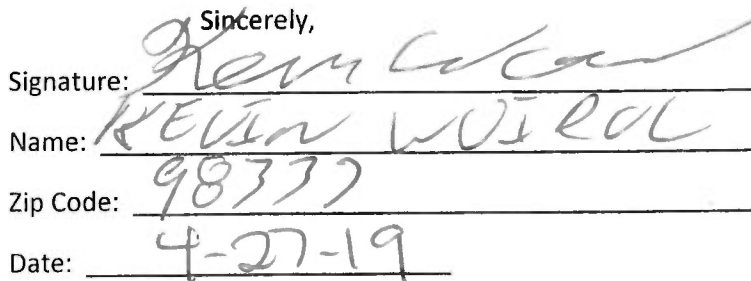 Sincerely,
Signature:
Name: KEVIN
Zip Code: 98337
Date: 4-27-19